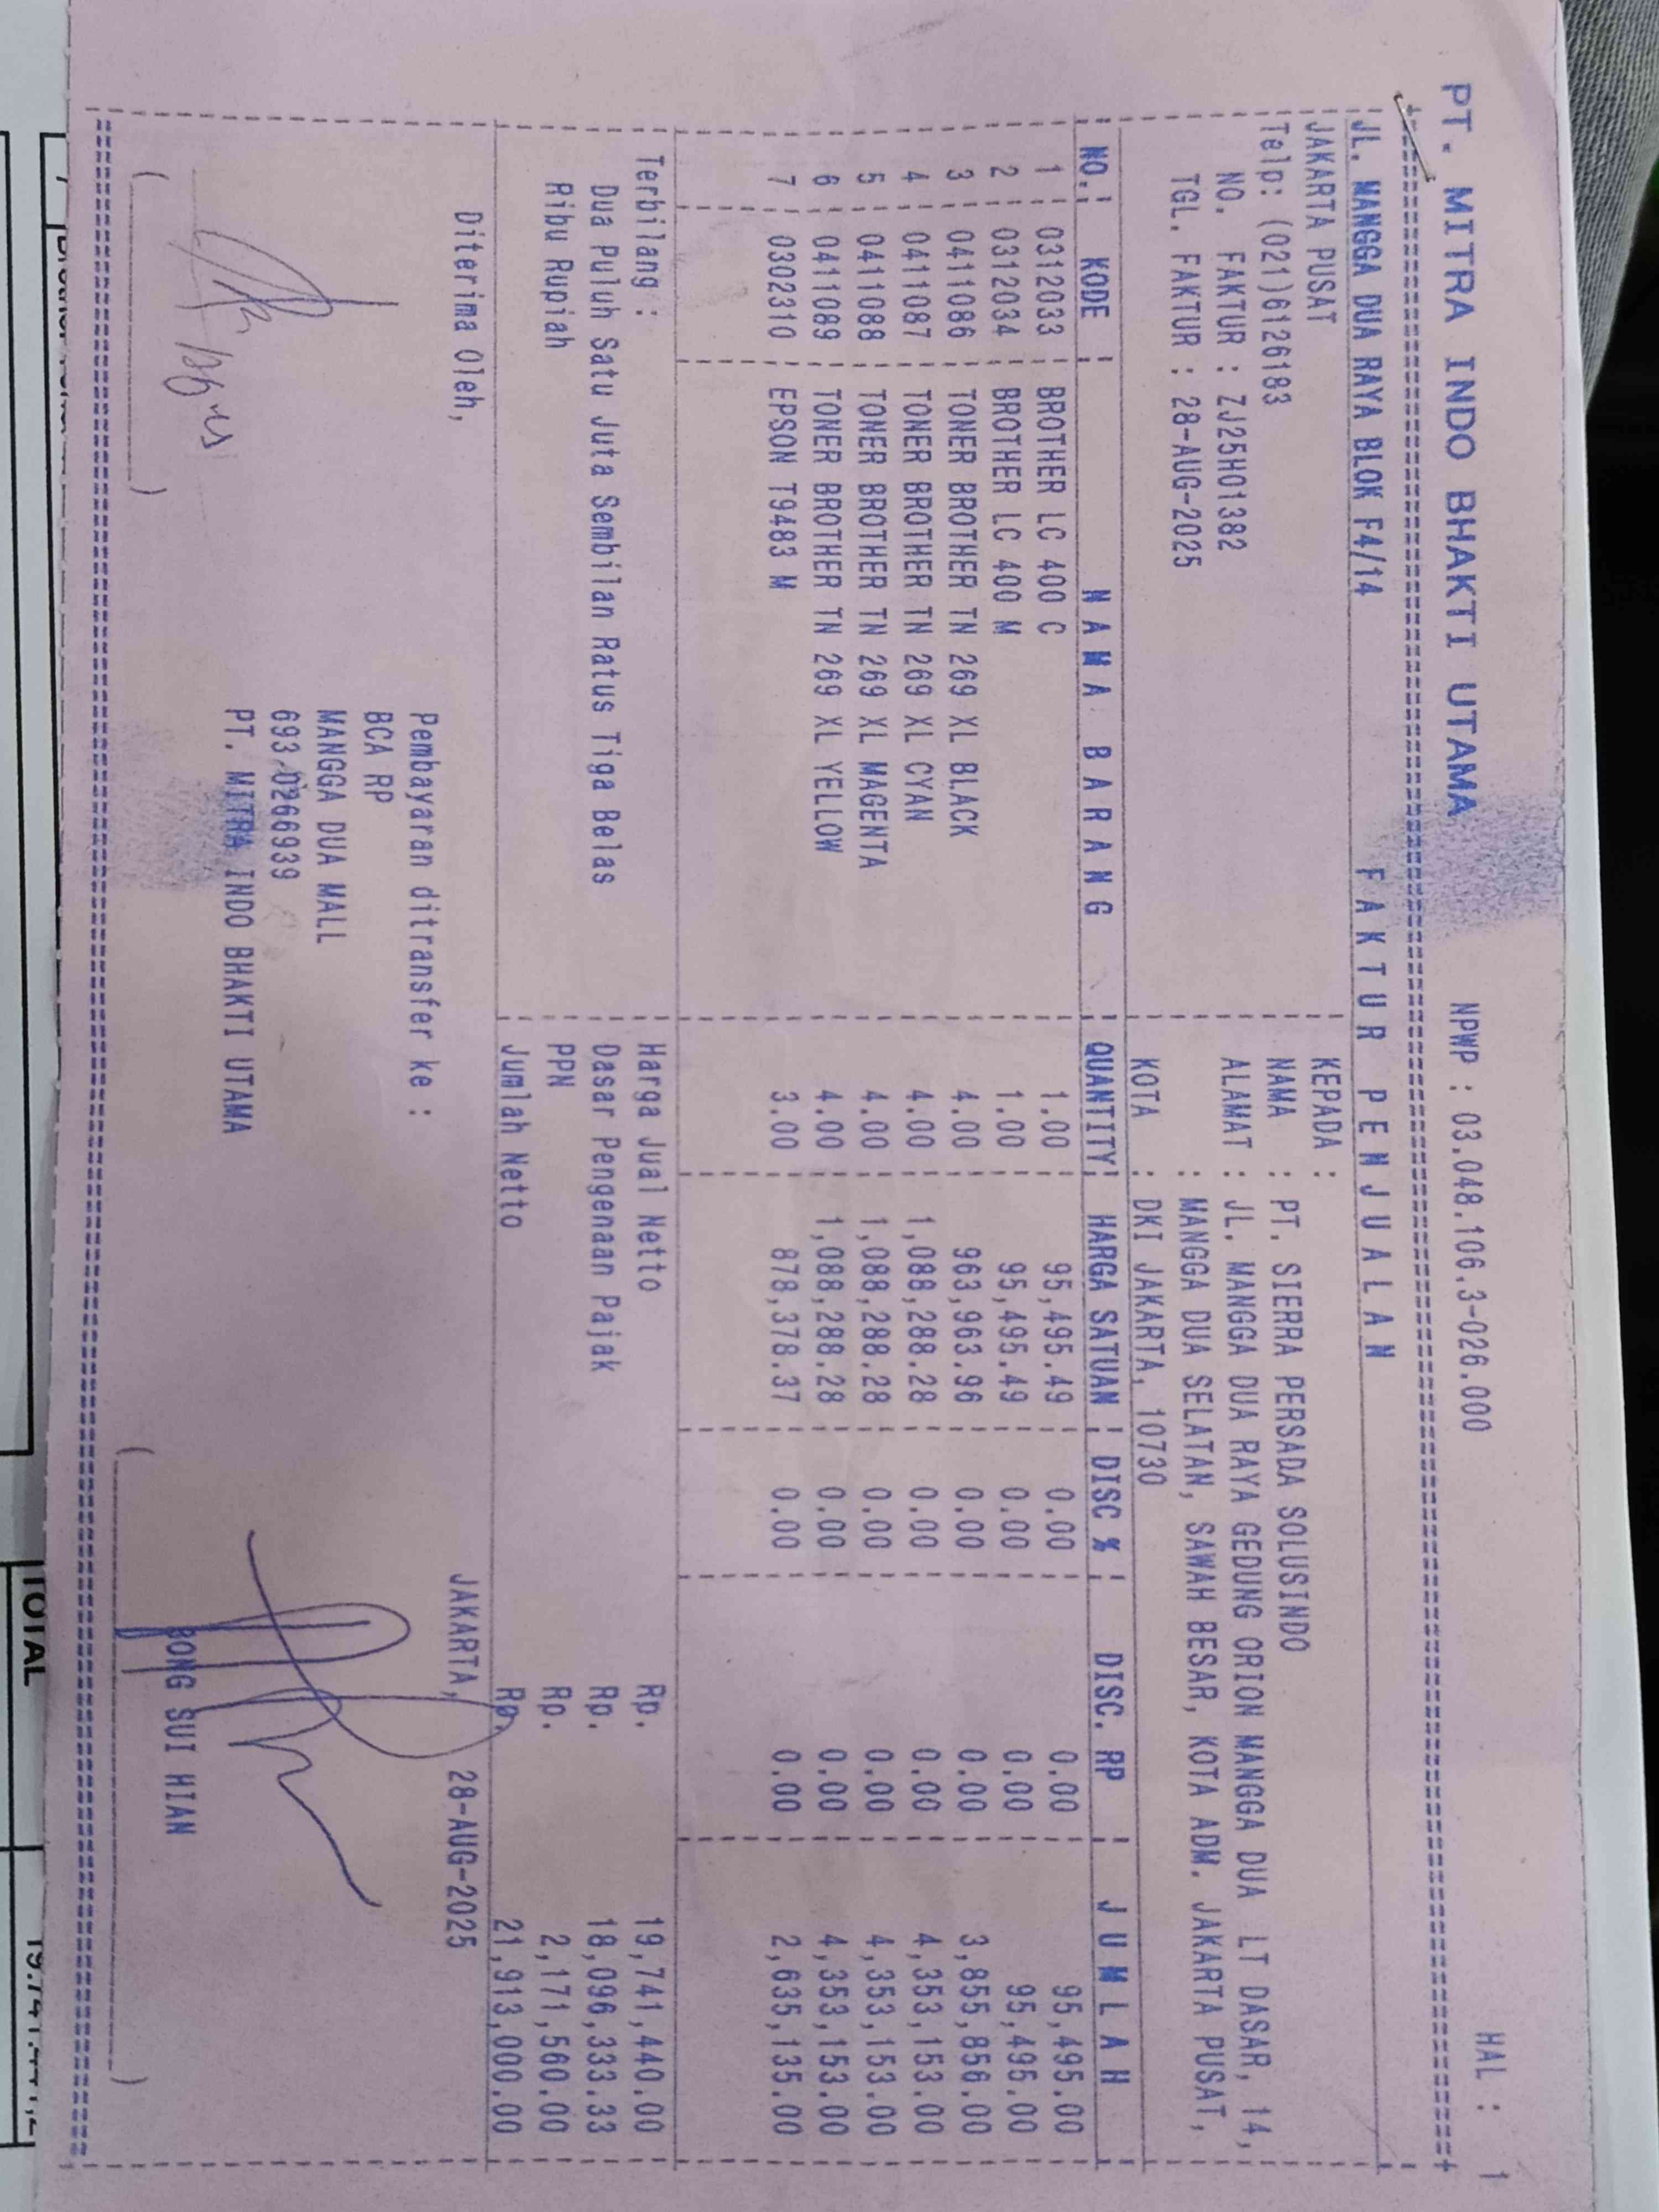 PT. MITRA INDO BHAKTI UTAMA NPWP : 03.048.106.3-026.000 HAL : 1
JL. MANGGA DUA RAYA BLOK F4/14 F A K T U R P E N J U A L A N
JAKARTA PUSAT KEPADA :
Telp: (021)6126183 NAMA : PT. SIERRA PERSADA SOLUSINDO
NO. FAKTUR : ZJ25H01382 ALAMAT : JL. MANGGA DUA RAYA GEDUNG ORION MANGGA DUA LT DASAR, 14,
TGL. FAKTUR : 28-AUG-2025 : MANGGA DUA SELATAN, SAWAH BESAR, KOTA ADM. JAKARTA PUSAT,
KOTA : DKI JAKARTA, 10730
NO. KODE N A M A B A R A N G QUANTITY HARGA SATUAN DISC % DISC. RP J U M L A H
1 0312033 BROTHER LC 400 C 1.00 95,495.49 0.00 0.00 95,495.00
2 0312034 BROTHER LC 400 M 1.00 95,495.49 0.00 0.00 95,495.00
3 0411086 TONER BROTHER TN 269 XL BLACK 4.00 963,963.96 0.00 0.00 3,855,856.00
4 0411087 TONER BROTHER TN 269 XL CYAN 4.00 1,088,288.28 0.00 0.00 4,353,153.00
5 0411088 TONER BROTHER TN 269 XL MAGENTA 4.00 1,088,288.28 0.00 0.00 4,353,153.00
6 0411089 TONER BROTHER TN 269 XL YELLOW 4.00 1,088,288.28 0.00 0.00 4,353,153.00
7 0302310 EPSON T9483 M 3.00 878,378.37 0.00 0.00 2,635,135.00
Terbilang : Harga Jual Netto Rp. 19,741,440.00
Dua Puluh Satu Juta Sembilan Ratus Tiga Belas Dasar Pengenaan Pajak Rp. 18,096,333.33
Ribu Rupiah PPN Rp. 2,171,560.00
Jumlah Netto Rp. 21,913,000.00
Diterima Oleh, JAKARTA, 28-AUG-2025
Pembayaran ditransfer ke :
BCA RP
MANGGA DUA MALL
693-0266939
PT. MITRA INDO BHAKTI UTAMA
BONG SUI HIAN
TOTAL